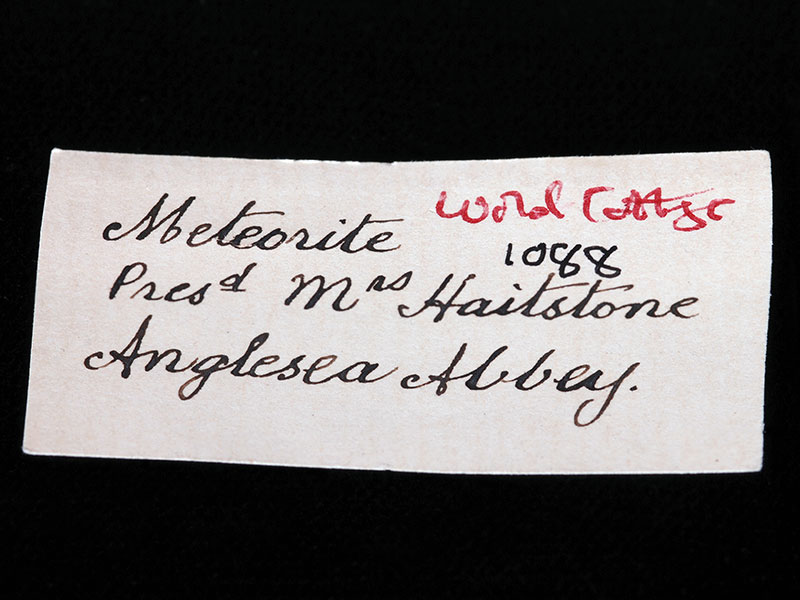 Meteorite
Wold Cottage
1088
Presd Mrs Haitstone
Anglesea Abbey.